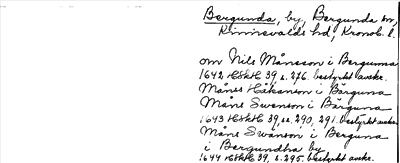 Bergunda, by, Bergunda sn,
Kinnevalds hd, Kronob. l.
om Nils Månsson i Bergunna
1642 HSkH 39, s. 276. bestyrkt avskr.
Månss Håkanson i Bärguna
Måns Swenson i Bärguna
1643 HSkH 39, ss. 290, 291. bestyrkt avskr.
Måns Swänson i Berguna
i Bergundha by
1644 HSkH 39, s. 295. bestyrkt avskr.